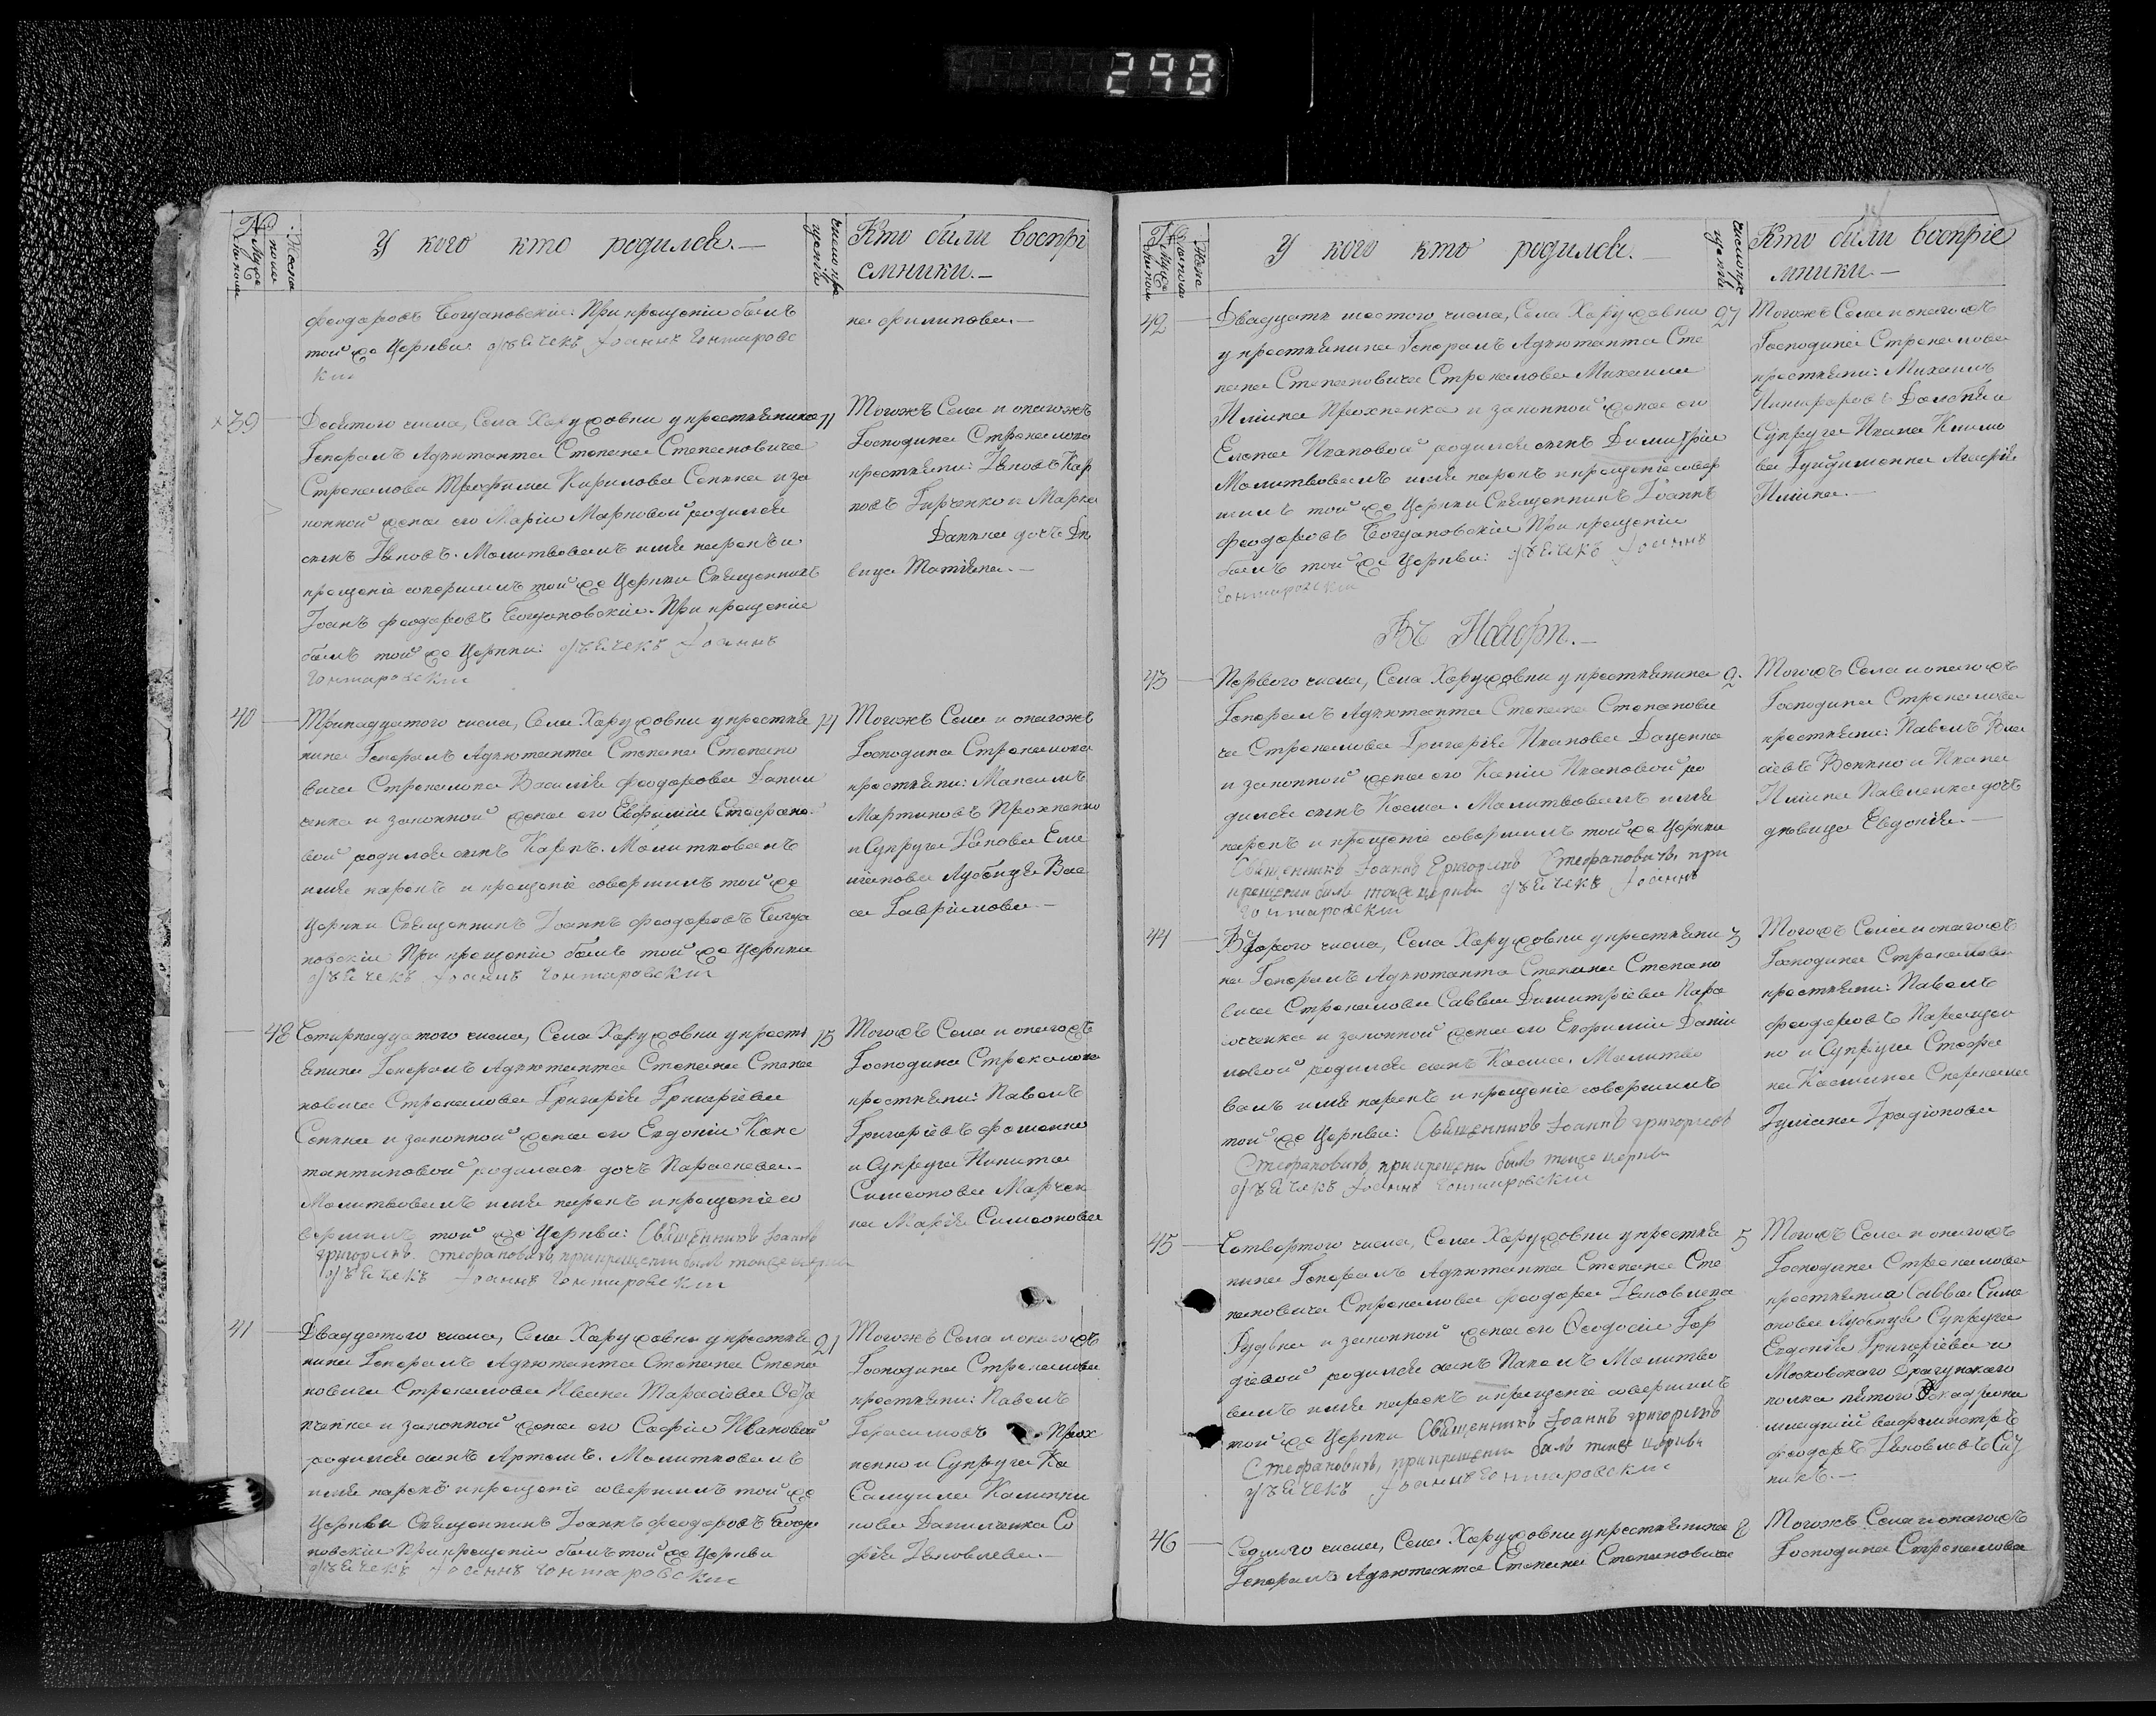 298
№
Мужеска
полов
Женска
У кого кто родился.—
число кре
щенія
Кто были воспрі
емники.—
феодоровъ Богдановскій. При крещеніи былъ
той же Церкви дьячекъ Іоаннъ Гонтаровс
кій
на Филипова.—
39
Десятого числа, Села Харужовки у крестянина
Генералъ Адъютанта Степана Степановича
Стрекалова Трофима Кирилова Сенька и за
конной жены его Маріи Марковой родился
сынъ Яковъ. Молитвовалъ имя нарекъ и
крещеніе совершилъ той же Церкви Священникъ
Іоанъ феодоровъ Богдановскій. При крещеніи
былъ той же Церкви: дьячекъ Іоаннъ
Гонтаровскій
11
Тогожъ Села и оногожъ
Господина Стрекалова
крестяни: Яковъ Кар
повъ Гирченко и Марка
Данька дочъ Дѣ
вица Матіяна.—
40
Тринадцатого числа, Села Харужовки у крестня
нина Генералъ Адъютанта Степана Степано
вича Стрекалова Василія феодорова Данил
ченка и законной жены его Евфиміи Стефано
вой родился сынъ Карпъ. Молитвовалъ
имя нарекъ и крещеніе совершилъ той же
Церкви Священникъ Іоаннъ феодоровъ Богда
новскій При крещеніи былъ той же Церкви
дьячекъ Іоаннъ Гонтаровскій
14
Тогожъ Села и оногожъ
Господина Стрекалова
крестяни: Максимъ
Мартиновъ Прохненко
и Супруга Якова Еме
льянова Лубенця Вас
са Гавріилова—
48
Четирнадцатого числа, Села Харужовки у крест
янина Генералъ Адъютанта Степана Степа
новича Стрекалова Григорія Григоріева
Сенька и законной жены его Евдокіи Конс
тантиновой родилась дочъ Параскева.—
Молитвовалъ имя нарекъ и крещеніе со
вершилъ той же Церкви: Священникъ Іоаннъ
Григорьевъ Стефановичъ, при крещеніи былъ тоиже церкви
дьячекъ Іоаннъ Гонтаровскій
15
Тогожъ Села и оногожъ
Господина Стрекалова
крестяни: Павелъ
Григоріевъ Фоменко
и Супруга Никита
Симеонова Марчен
ка Марія Симеонова
41
Двадцатого числа, Села Харужовки у крестня
нина Генералъ Адъютанта Степана Степа
новича Стрекалова Ивана Тарасіева
ченка и законной жены его Софіи Ивановой
родился сынъ Артемъ. Молитвовалъ
имя нарекъ и крещеніе совершилъ той же
Церкви Священникъ Іоаннъ феодоровъ Богда
новскій При крещеніи былъ той же Церкви
дьячекъ Іоаннъ Гонтаровскій
21
Тогожъ Села и оногожъ
Господина Стрекалова
крестяни: Павелъ
Герасимовъ Прох
ненко и Супруга Ка
Самуила Калинни
кова Данилченка Со
фія Яковлева.—
№
Мужеска
полов
Женска
У кого кто родился.—
число кре
щенія
Кто были воспріе
мники.—
42
Двадцать шестого числа, Села Харужовки
у крестянина Генералъ Адъютанта Сте
пана Степановича Стрекалова Михаила
Иліина Прохненка и законной жены его
Елены Ивановой родился сынъ Димитрій
Молитвовалъ имя нарекъ и крещеніе совер
шилъ той же Церкви Священникъ Іоаннъ
феодоровъ Богдановскій При крещеніи
былъ той же Церкви: дьячекъ Іоаннъ
Гонтаровскій
27
Тогожъ Села и оногожъ
Господина Стрекалова
крестяни: Михаилъ
Никифоровъ
Супруга Ивана Климо
ва Агафія
Иліина.—
Въ Ноябри.—
43
Первого числа, Села Харужовки у крестянина
Генералъ Адъютанта Степана Степанови
ча Стрекалова Григорія Иванова Даценка
и законной жены его Ксніи Ивановой ро
дился сынъ Косма. Молитвовалъ имя
нарекъ и крещеніе совершилъ той же Церкви
Священникъ Іоаннъ Григорьевъ Стефановичъ, при
крещеніи былъ тоиже церкви дьячекъ Іоаннъ
Гонтаровскій
2.
Тогожъ Села и оногожъ
Господина Стрекалова
крестяни: Павелъ Вла
сіевъ Венко и Ивана
Иліина Павленка дочъ
дѣвица Евдокія.—
44
Второго числа, Села Харужовки у крестяни
на Генералъ Адъютанта Степана Степано
вича Стрекалова Саввы Димитріева Пара
сченка и законной жены его Евфиміи Даніи
ловой родился сынъ Косма. Молитво
валъ имя нарекъ и крещеніе совершилъ
той же Церкви: Священникъ Іоаннъ Григорьевъ
Стефановичъ, при крещеніи былъ тоиже церкви
дьячекъ Іоаннъ Гонтаровскій
3
Тогожъ Села и оногожъ
Господина Стрекалова
крестяни: Павелъ
феодоровъ Паращен
ко и Супруга Стефа
на Космина
Іуліана Ірадіонова
45
Четвертого числа, Села Харужовки у крестня
нина Генералъ Адъютанта Степана Сте
пановича Стрекалова феодора Яковлева
Дудька и законной жены его Феодосіи Гор
діевой родился сынъ Павелъ Молитво
валъ имя нарекъ и крещеніе совершилъ
той же Церкви Священникъ Іоаннъ Григорьевъ
Стефановичъ, при крещеніи былъ тоиже церкви
дьячекъ Іоаннъ Гонтаровскій
5
Тогожъ Села и оногожъ
Господина Стрекалова
крестянина Саввы Симе
онова Лубенця Супруга
Евдокія Григоріева и
Московского Драгунского
полка пятого Ескадрона
младшій вахмистръ
феодоръ Яковлевъ
никъ.—
46
Седмого числа, Села Харужовки у крестянина
Генералъ Адъютанта Степана Степановича
8
Тогожъ Села и оногожъ
Господина Стрекалова